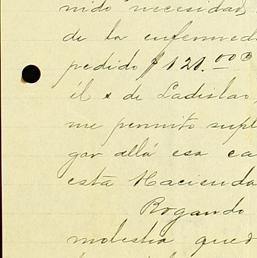 nido necesidad
de la enfermed
pedido $120.00
él x de Ladislao,
me permito supl
gar allá esa ca
esta Hacienda
Rogando
molestia qued